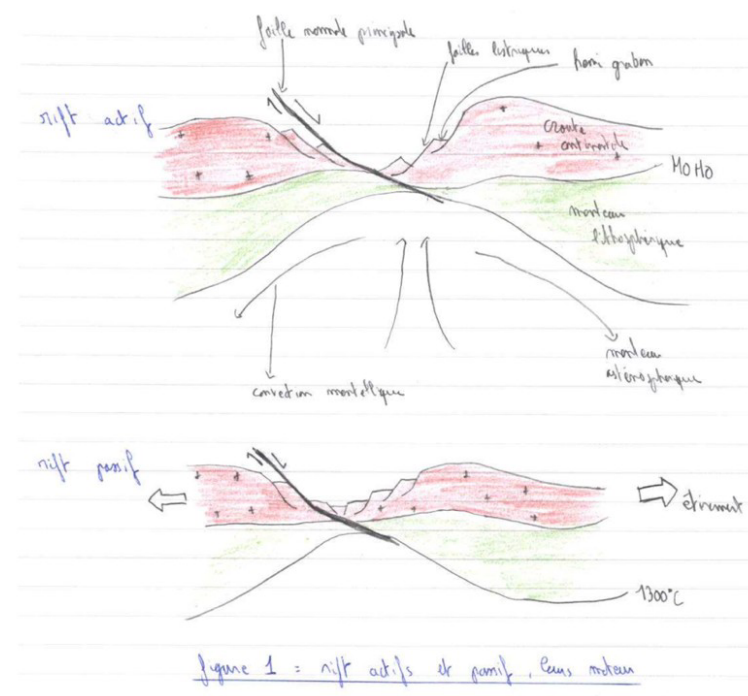 faille normale principale
failles listriques
hemi graben
rift actif
croute
continentale
MOHO
manteau
lithosphérique
manteau
asténosphérique
convection mantellique
rift passif
étirement
1300°C
figure 1 = rift actifs et passif, leurs moteurs